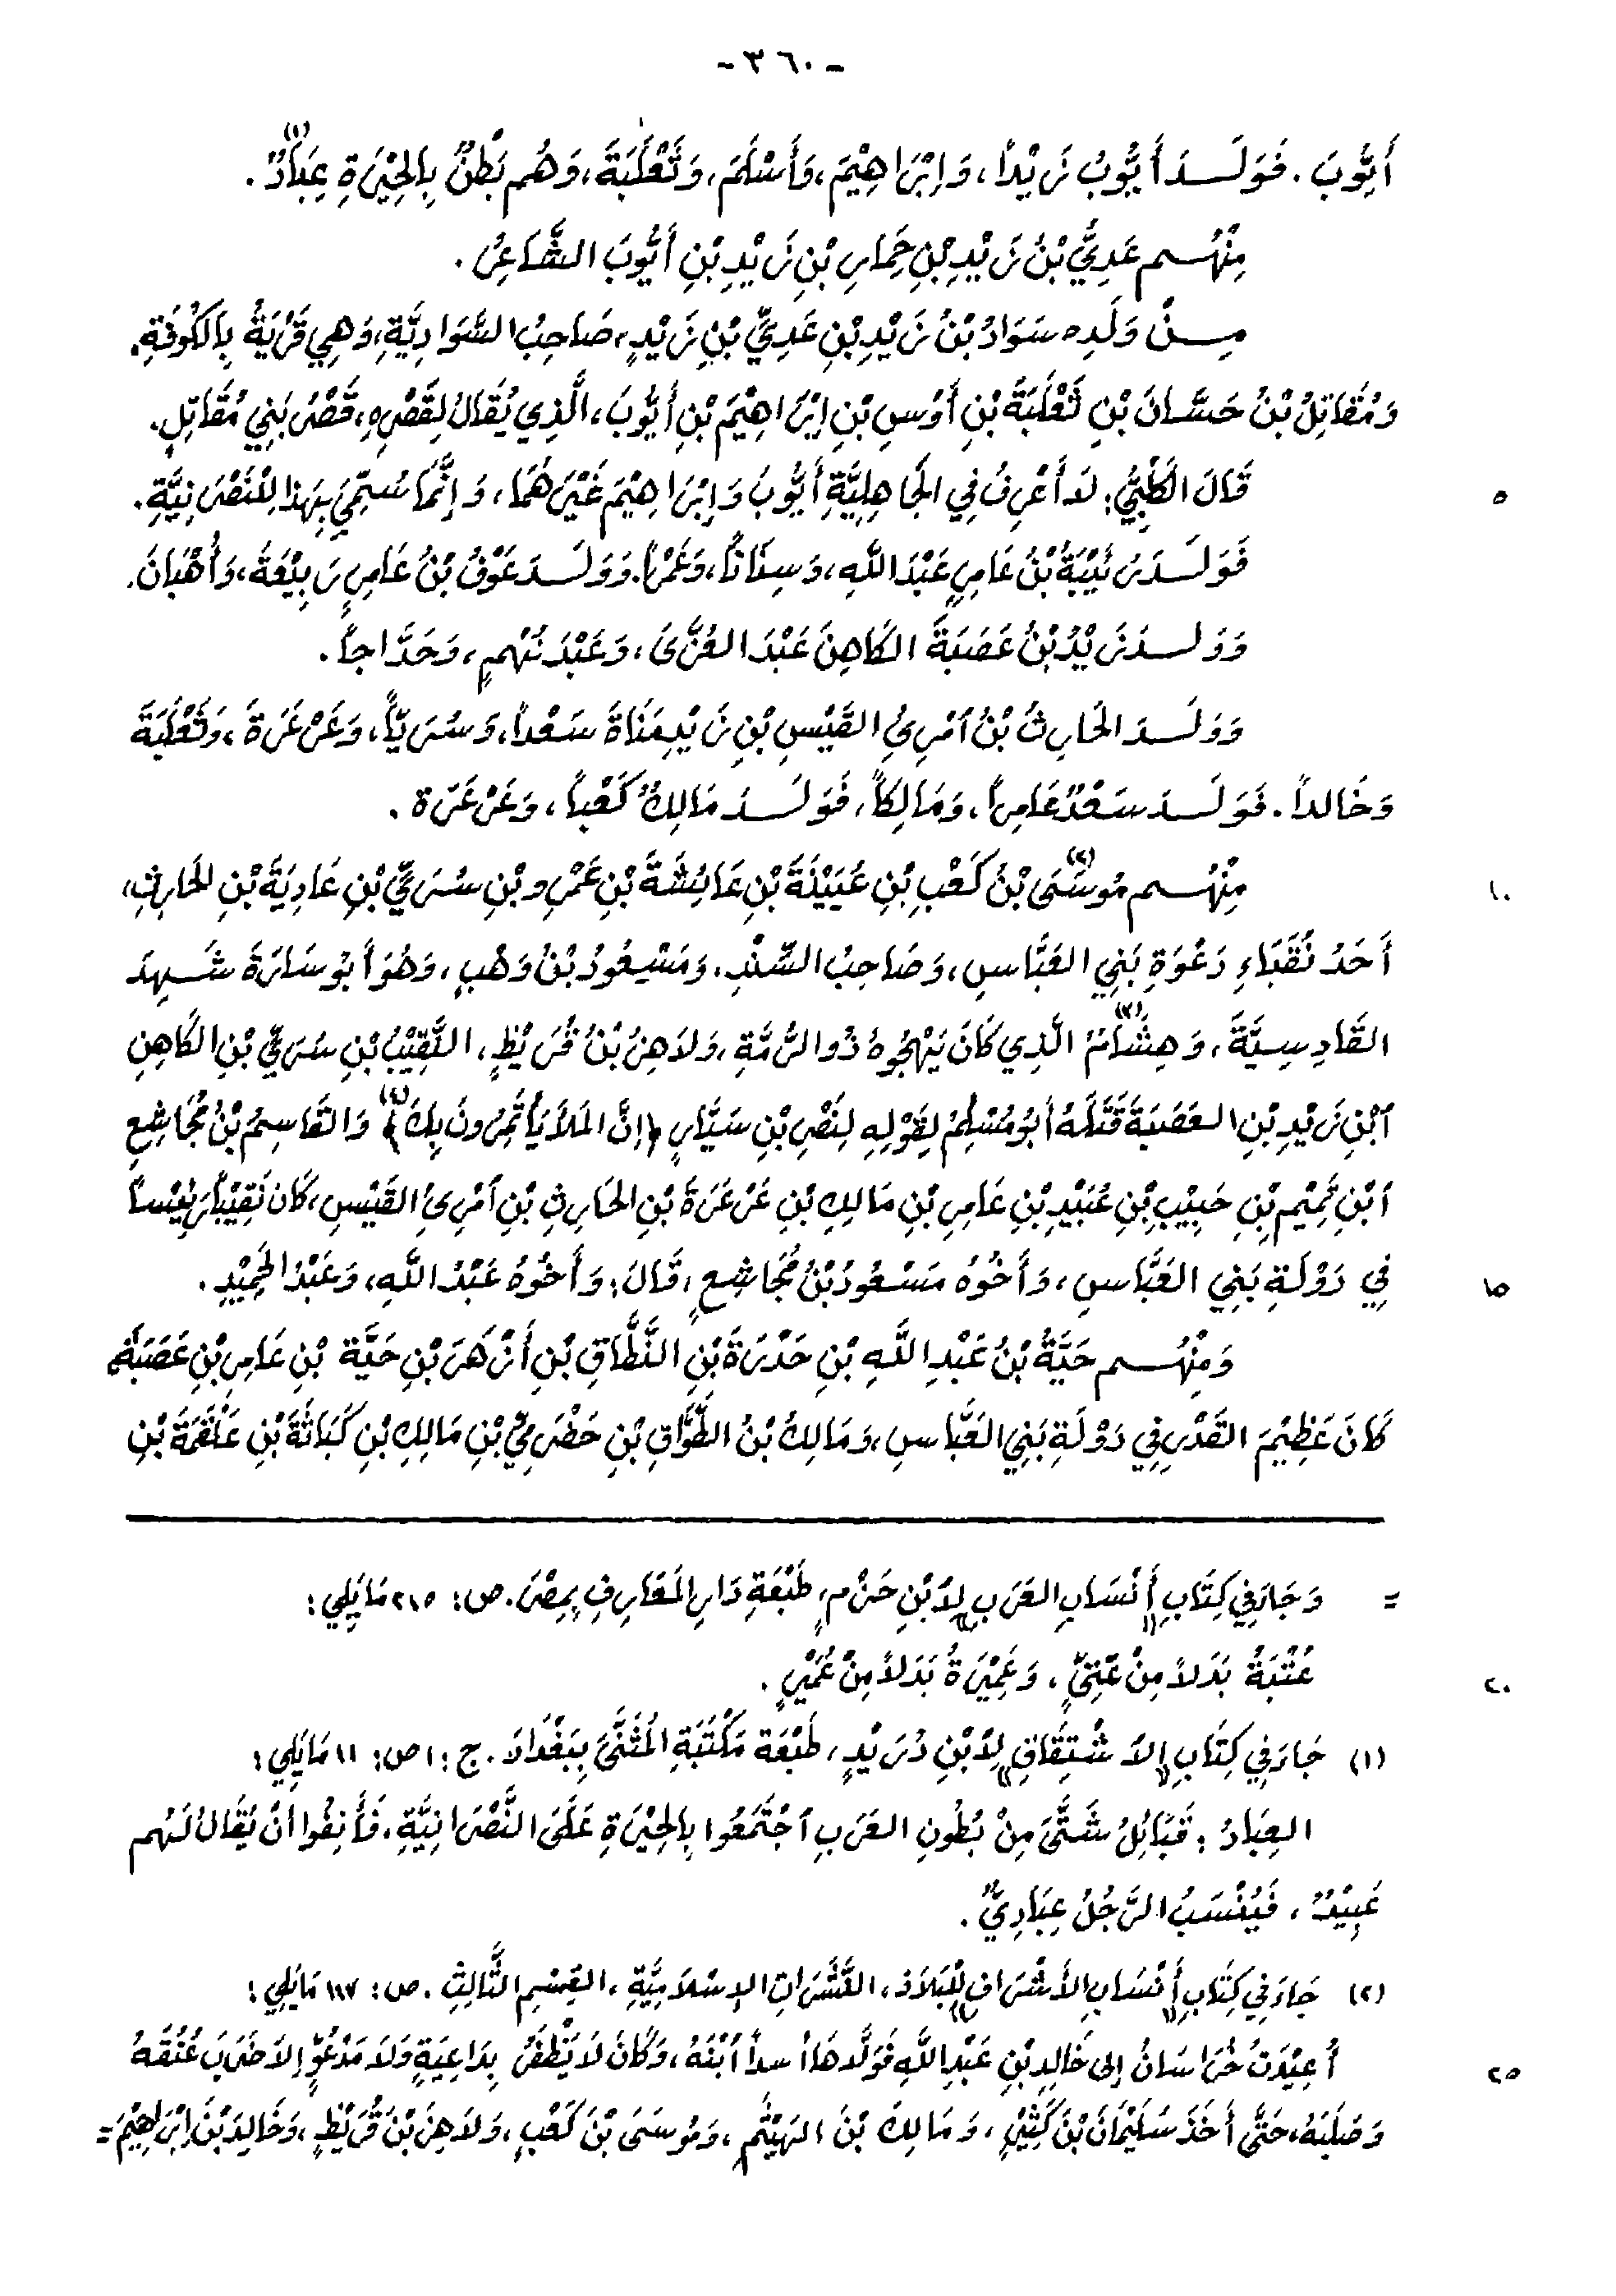 - ٣٦٠ -
أَيُّوبَ . فَوَلَـدَ أَيُّوبُ زَيْداً، وَإِبْرَاهِيْمَ، وَأَسْلَمَ، وَثَعْلَبَةَ، وَهُم بَطْنٌ بِالحِيْرَةِ عِبَادٌ(١) .
مِنْهُـم عَدِيُّ بْنُ زَيْدِ بْنِ حِمَارِ بْنِ زَيْدِ بْنِ أَيُّوبَ الشَّاعِرُ .
مِـنْ وَلَدِهِ سَوَادُ بْنُ زَيْدِ بْنِ عَدِيِّ بْنِ زَيْدٍ، صَاحِبُ السَّوَادِيَّةِ، وَهِي قَرْيَةٌ بِالكُوفَةِ.
وَمُقَاتِلُ بْنُ حَسَّانَ بْنِ ثَعْلَبَةَ بْنِ أَوْسِ بْنِ إِبْرَاهِيْمَ بْنِ أَيُّوبَ، الَّذِي يُقَالُ لِقَصْرِهِ، قَصْرُ بَنِي مُقَاتِلٍ.
قَالَ الكَلْبِيُّ: لاَ أَعْرِفُ فِي الجَاهِلِيَّةِ أَيُّوبَ وَإِبْرَاهِيْمَ غَيْرَهُمَا، وَإِنَّمَا سُمِّيَ بِهَذا لِلْنَصْرَنِيَّةِ. ٥
فَوَلَـدَ زَبِيْبَةُ بْنُ عَامِرٍ عَبْدَ اللَّهِ، وَسِنَاناً، وَعَمْراً. وَوَلَـدَ عَوْفُ بْنُ عَامِرٍ رَبِيْعَةَ، وَأُهْبَانَ.
وَوَلَـدَ زَيْدُ بْنُ عَصَبَةَ الكَاهِنَ عَبْدَ العُزَّى، وَعَبْدَ نُهْمٍ، وَحَدَّاجاً .
وَوَلَـدَ الحَارِثُ بْنُ ٱمْرِئِ القَيْسِ بْنِ زَيْدِ مَنَاةَ سَعْداً، وَسُرَيّاً، وَعَرْعَرَةَ، وَثَعْلَبَةَ
وَخَالداً . فَوَلَـدَ سَعْدٌ عَامِراً، وَمَالِكاً، فَوَلَـدَ مَالِكٌ كَعْباً، وَعَرْعَرَة .
مِنْهُـم مُوسَى(٢) بْنُ كَعْبِ بْنِ عُيَيْنَةَ بْنِ عَائِشَةَ بْنِ عَمْرِو بْنِ سُرَيِّ بْنِ عَادِيَةَ بْنِ الحَارِثِ، ١٠
أَحَدُ نُقَبَاءِ دَعْوَةِ بَنِي العَبَّاسِ، وَصَاحِبُ السِّنْدِ، وَمَسْعُودُ بْنُ وَهْبٍ، وَهُوَ أَبُو سَارَةَ شَـهِدَ
القَادِسِيَّةَ، وَهِشَامُ(٣) الَّذِي كَانَ يَهْجُوهُ ذُو الرُّمَّةِ، وَلاَهِزُ بْنُ قُرَيْظٍ، النَّقِيْبُ بْنِ سُرَيِّ بْنِ الكَاهِنِ
ٱبْنِ زَيْدِ بْنِ العَصَبَةَ قَتَلَهُ أَبُو مُسْلِمٍ لِقَوْلِهِ لِنَصْرِ بْنِ سَيَّارٍ ﴿إِنَّ المَلأَ يَأْتَمِرُونَ بِكَ﴾(٤) وَالقَاسِمُ بْنُ مُجَاشِعِ
ٱبْنِ تَمِيْمِ بْنِ حَبِيْبِ بْنِ عُبَيْدِ بْنِ عَامِرِ بْنِ مَالِكِ بْنِ عَرْعَرَةَ بْنِ الحَارِثِ بْنِ ٱمْرِئِ القَيْسِ، كَانَ نَقِيْباً رَئِيْساً
فِي دَوْلَةِ بَنِي العَبَّاسِ، وَأَخُوهُ مَسْعُودُ بْنُ مُجَاشِعٍ، قَالَ: وَأَخُوهُ عَبْدُ اللَّهِ، وَعَبْدُ الحَمِيْدِ . ١٥
وَمِنْهُـم حَيَّةُ بْنُ عَبْدِ اللَّهِ بْنِ حَدْرَةَ بْنِ النَّطَّاقِ بْنِ أَزْهَرَ بْنِ حَيَّة بْنِ عَامِرِ بْنِ عَصَبَةَ،
كَانَ عَظِيْمَ القَدْرِ فِي دَوْلَةِ بَنِي العَبَّاسِ، وَمَالِكُ بْنُ الطَّوَّاقِ بْنِ حَضْرَمِيِّ بْنِ مَالِكِ بْنِ كَبَاثَةَ بْنِ عَلْقَمَةَ بْنِ
= وَجَاءَ فِي كِتَابِ «أَنْسَابِ العَرَبِ» لاِبْنِ حَزْمٍ، طَبْعَةِ دَارِ المَعَارِفِ بِمِصْرَ. ص: ٢١٥ مَايَلِي:
عُتْبَةُ بَدَلاً مِنْ عُتِيٍّ، وَعُمَيْرَةُ بَدَلاً مِنْ عُمَيْرٍ . ٢٠
(١) جَاءَ فِي كِتَابِ «الاِشْتِقَاقِ» لاِبْنِ دُرَيْدٍ، طَبْعَة مَكْتَبَةِ المُثَنَّى بِبَغْدَادَ . ج: ١ ص: ١١ مَايَلِي:
العِبَادُ : قَبَائِلُ شَتَّى مِنْ بُطُونِ العَرَبِ ٱجْتَمَعُوا بِالحِيْرَةِ عَلَى النَّصْرَانِيَّةِ، فَأَنِفُوا أَنْ يُقَالَ لَهُم
عَبِيْدٌ، فَيُنْسَبُ الرَّجُلُ عِبَادِيٌّ .
(٢) جَاءَ فِي كِتَابِ «أَنْسَابِ الأَشْرَافِ» لِلْبَلاَذ، النَّشَرَاتِ الإِسْلاَمِيَّةِ، القِسْمِ الثَّالِثِ . ص: ١١٧ مَايَلِي:
أُعِيْدَتْ خُرَاسَانُ إِلى خَالِدِ بْنِ عَبْدِ اللَّهِ فَوَلَّاهَا أَسداً ٱبْنَهُ، وَكَانَ لاَ يَظْفَرُ بِدَاعِيَةٍ وَلاَ مَدْعُوٍّ إلاَّ ضَرَبَ عُنُقَهُ ٢٥
وَصَلَبَهُ، حَتَّى أَخَذَ سُلَيْمَانَ بْنَ كَثِيْرٍ، وَمَالِكَ بْنَ الهَيْثَمِ، وَمُوسَى بْنَ كَعْبٍ، وَلاَهِزَ بْنَ قُرَيْظٍ، وَخَالِدَ بْنَ إِبْرَاهِيْمَ =